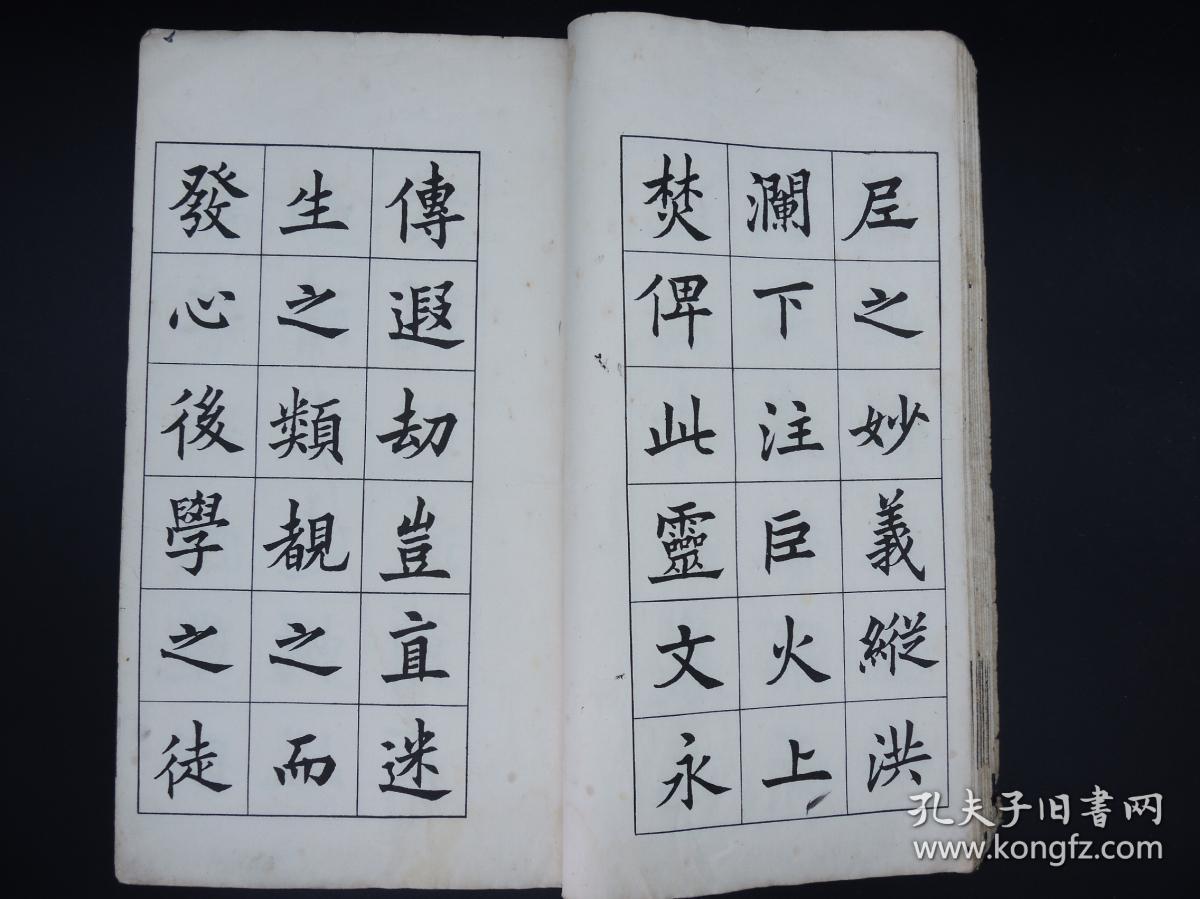 𡰱之妙義縱洪
瀾下注巨火上
焚俾此靈文永
傳遐劫豈直迷
生之類覩之而
發心後學之徒
孔夫子旧書网
www.kongfz.com